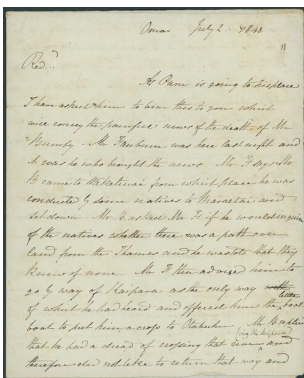 Omai July 2 1840
Recd
As Pam is going to his place
I have asked him to bear this to you which
will convey the painful news of the death of Mr
Bumby. Mr Fairburn was here last night and
it was he who brought the news. Mr F says Mr
B came to the Kaituai from which place he was
conducted by some natives to Waraetai and
sat down. Mr B asked Mr F. if he would inquire
of the natives whether there was a path over
land from the Thames and he was told that they
knew of none. Mr F then advised him to
go by way of Kaipara as the only way
letter
of which he had heard and offered him the boat
boat to put him across to Otahuhu. Mr B replied
(via the Kaipara)
that he had a dread of crossing that river and
therefore did not like to return that way and